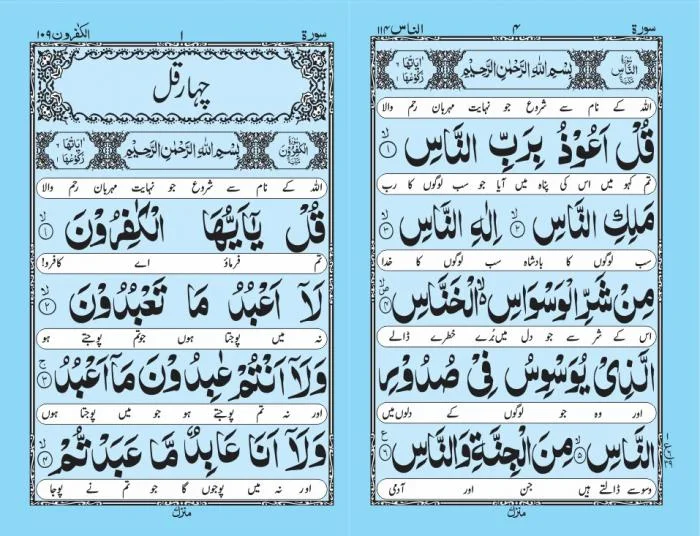 سورة ۴ الناس ۱۱۴
سورة الناس بسم الله الرحمن الرحيم اياتها ٦ ركوعها ١
اللہ کے نام سے شروع جو نہایت مہربان رحم والا
قُلْ اَعُوْذُ بِرَبِّ النَّاسِ ۙ﴿۱﴾
تم کہو میں اس کی پناہ میں آیا جو سب لوگوں کا رب
مَلِكِ النَّاسِ ۙ﴿۲﴾ اِلٰهِ النَّاسِ ۙ﴿۳﴾
سب لوگوں کا بادشاہ سب لوگوں کا خدا
مِنْ شَرِّ الْوَسْوَاسِ ۙ۬ الْخَنَّاسِ ۪ۙ﴿۴﴾
اس کے شر سے جو دل میں بُرے خطرے ڈالے
الَّذِیْ یُوَسْوِسُ فِیْ صُدُوْرِ
اور وہ جو لوگوں کے دلوں میں
النَّاسِ ۙ﴿۵﴾ مِنَ الْجِنَّةِ وَالنَّاسِ ﴿۶﴾ ع
وسوسے ڈالتے ہیں جن اور آدمی
منزل
سورة ۱ الکفرون ۱۰۹
چہار قل
سورة الكفرون بسم الله الرحمن الرحيم اياتها ٦ ركوعها ١
اللہ کے نام سے شروع جو نہایت مہربان رحم والا
قُلْ یٰۤاَیُّهَا الْكٰفِرُوْنَ ۙ﴿۱﴾
تم فرماؤ اے کافرو!
لَاۤ اَعْبُدُ مَا تَعْبُدُوْنَ ۙ﴿۲﴾
نہ میں پوجتا ہوں جو تم پوجتے ہو
وَلَاۤ اَنْتُمْ عٰبِدُوْنَ مَاۤ اَعْبُدُ ۚ﴿۳﴾
اور نہ تم پوجتے ہو جو میں پوجتا ہوں
وَلَاۤ اَنَا عَابِدٌ مَّا عَبَدْتُّمْ ۙ﴿۴﴾
اور نہ میں پوجوں گا جو تم نے پوجا
منزل